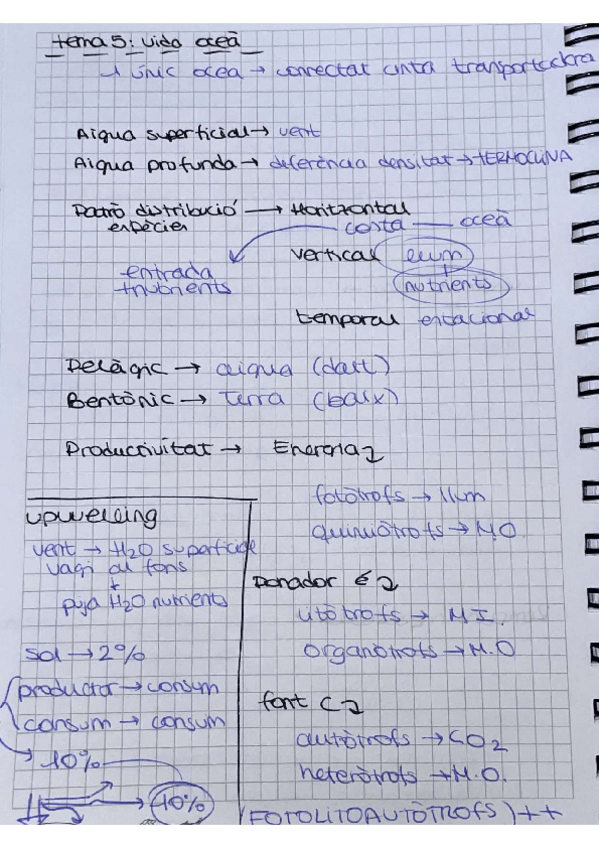 tema 5: vida oceà
1 únic oceà → connectat cinta transportadora
Aigua superficial → vent
Aigua profunda → diferència densitat → TERMOCLINA
Patró distribució → Horitzontal
espècies
costa — oceà
entrada
+nutrients
vertical llum
+
nutrients
temporal estacional
Pelàgic → aigua (dalt)
Bentònic → Terra (baix)
Productivitat → Energia
fotòtrofs → llum
quimiòtrofs → MO
Donador é
litòtrofs → M I.
organòtrofs → M.O
font C
autòtrofs → CO2
heteròtrofs → M.O.
(FOTOLITOAUTÒTROFS) ++
upwelling
vent → H2O superfície
vagi al fons
+
puja H2O nutrients
sol → 2%
productor → consum
consum → consum
10%
10%